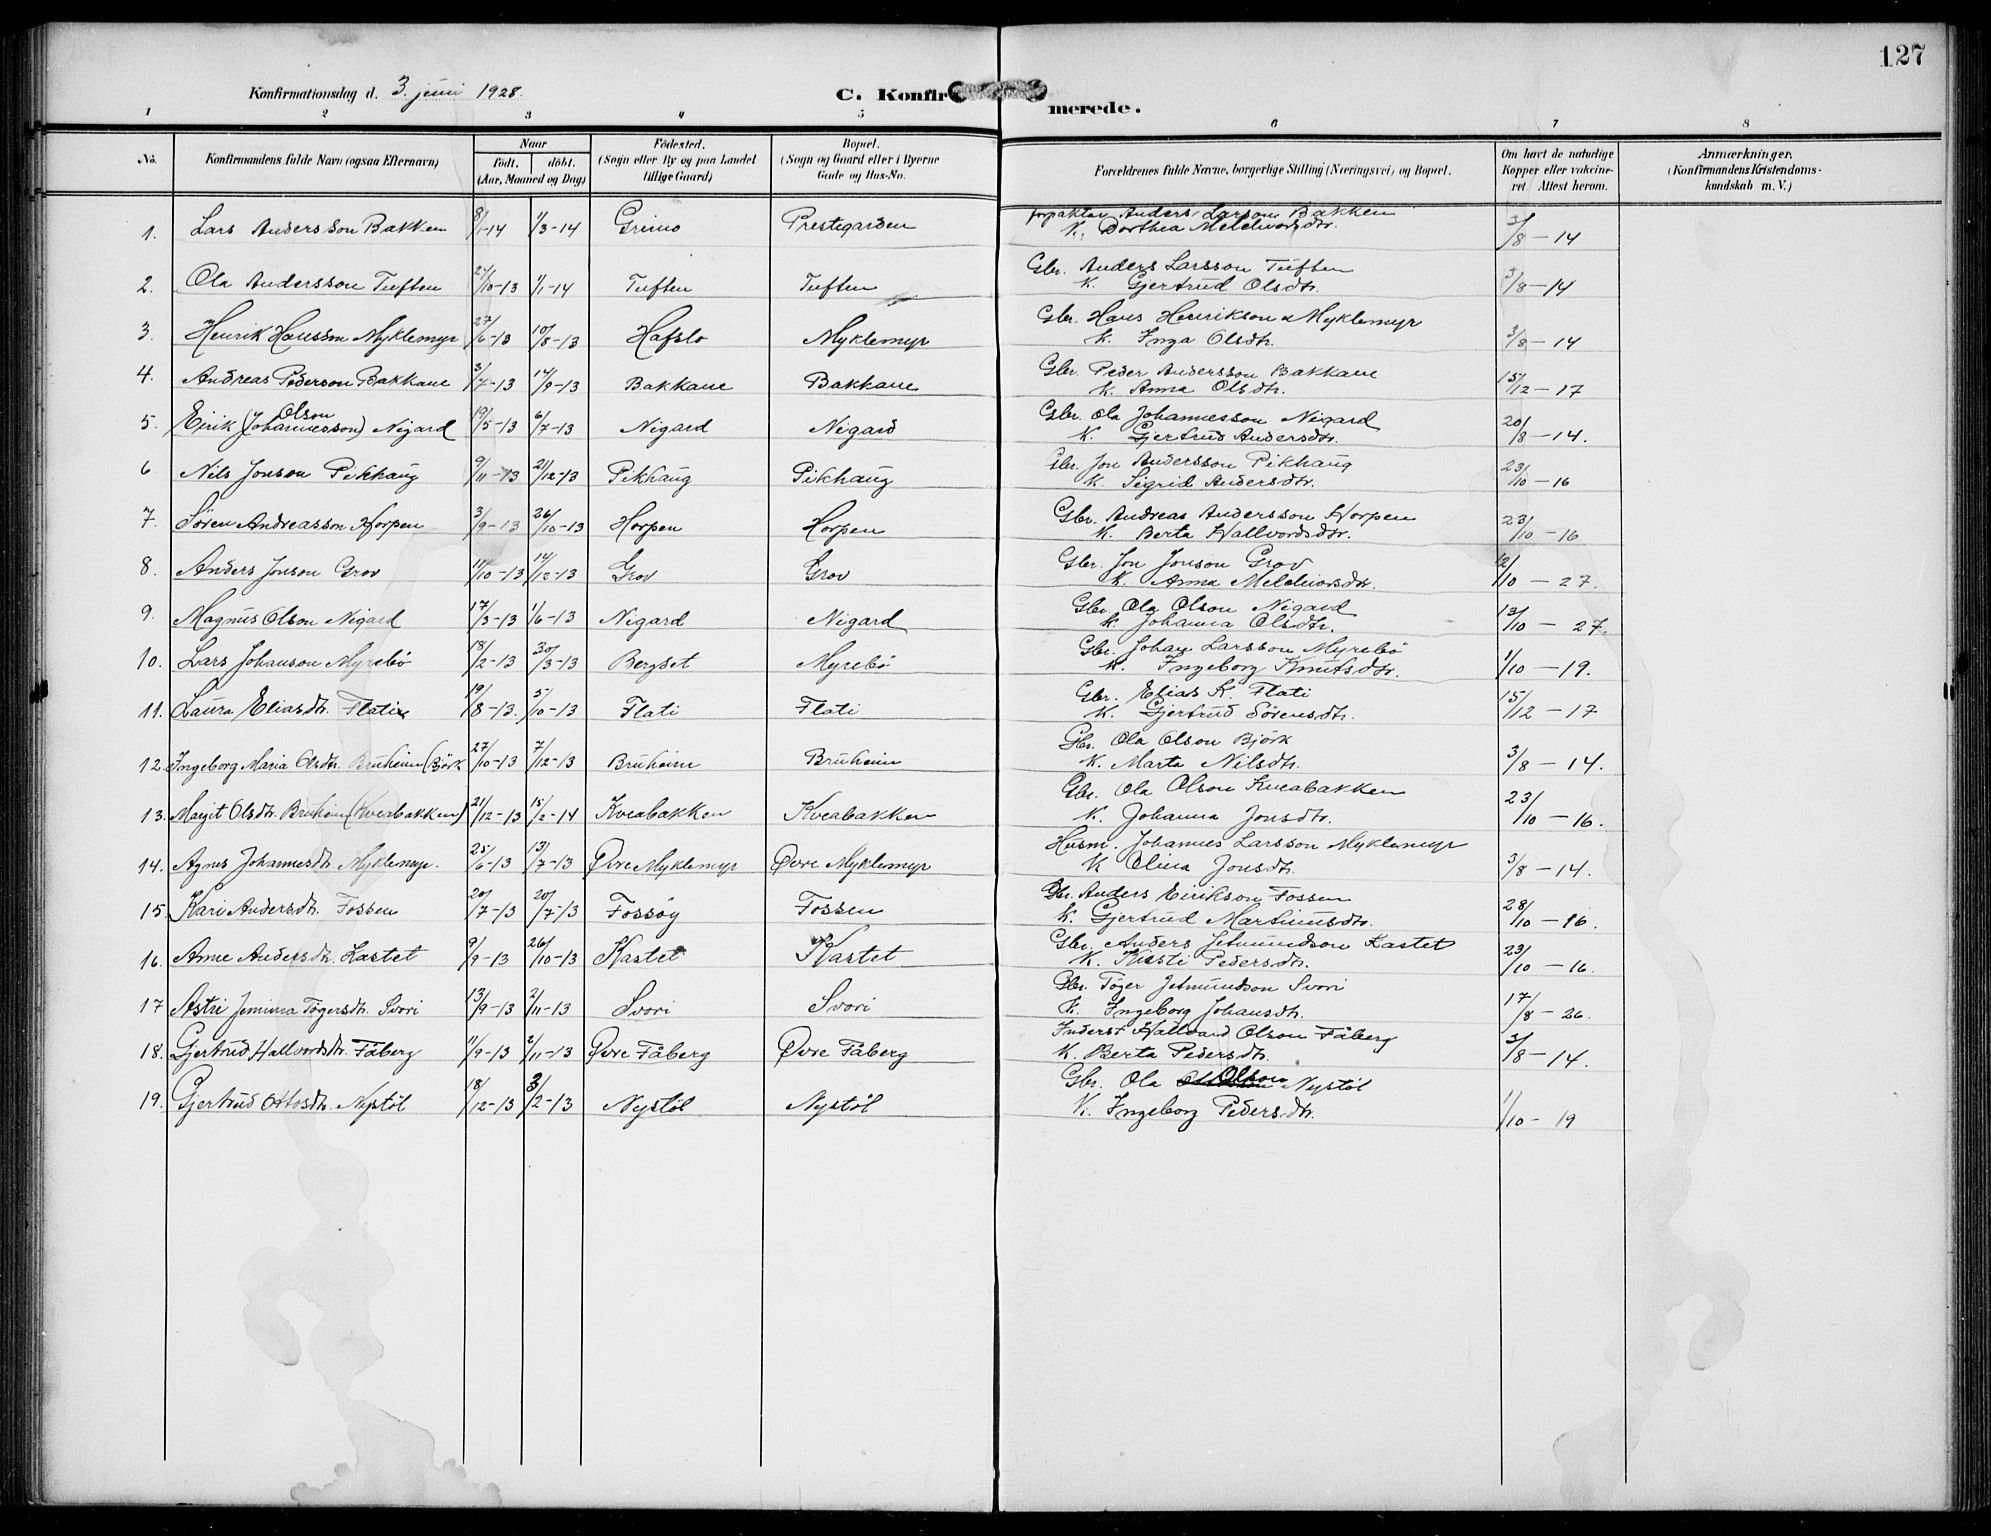 127
Konfirmationsdag d. 3. juni 1928.
C. Konfirmerede.
1 2 3 4 5 6 7 8
No. Konfirmandens fulde Navn (ogsaa Efternavn) Naar födt. döbt. (Aar, Maaned og Dag) Födested. (Sogn eller By og paa Landet tillige Gaard) Bopæl. (Sogn og Gaard eller i Byerne Gade og Hus-No. Forældrenes fulde Navne, borgerlige Stilling (Næringsvei) og Bopæl. Om havt de naturlige Kopper eller vakcineret. Attest herom. Anmærkninger. (Konfirmandens Kristendomskundskab m. V.)
1. Lars Andersson Bakken 8/1-14 1/3-14 Grimo Prestegarden forpaktar Anders Larson Bakken
K. Dorthea Melchiorsdtr. 3/8-14
2. Ola Andersson Tuften 27/10-13 1/1-14 Tuften Tuften Gbr. Anders Larsson Tuften
K. Gjertrud Olsdtr. 3/8-14
3. Henrik Hansson Myklemyr 27/6-13 10/8-13 Hafslo Myklemyr Gbr. Hans Henrikson Myklemyr
K. Inga Olsdtr. 3/8-14
4. Andreas Pederson Bakkane 3/7-13 14/9-13 Bakkane Bakkane Gbr. Peder Andersson Bakkane
K. Anna Olsdtr. 15/12-17
Olson
5. Eirik (Johannesson) Nigard 19/5-13 6/7-13 Nigard Nigard Gbr. Ola Johannesson Nigard
K. Gjertrud Andersdtr. 20/8-14.
6 Nils Jonson Pikhaug 9/11-13 21/12-13 Pikhaug Pikhaug Gbr. Jon Andersson Pikhaug
K. Sigrid Andersdtr. 23/10-16
7. Sören Andreasson Horpen 3/9-13 26/10-13 Horpen Horpen Gbr. Andreas Andersson Horpen
K. Berta Hallvordsdtr. 23/10-16
8. Anders Jonson Grov 11/10-13 14/12-13 Grov Grov Gbr. Jon Jonson Grov
K. Anna Melchiorsdtr. 12/10-27.
9. Magnus Olson Nigard 17/3-13 1/6-13 Nigard Nigard Gbr. Ola Olson Nigard
K. Johanna Olsdtr. 13/10-27.
10. Lars Johanson Myrebö 18/2-13 30/3-13 Bergset Myrebö Gbr. Johan Larsson Myrebö
K. Ingeborg Knutsdtr. 1/10-19.
11. Laura Eliasdtr. Flati 19/8-13. 5/10-13 Flati Flati Gbr. Elias K. Flati
K. Gjertrud Sörensdtr. 15/12-17
12. Ingeborg Maria Olsdtr. Bruheim (Björk 27/10-13 7/12-13 Bruheim Bruheim Gbr. Ola Olson Björk
K. Marta Nilsdtr. 3/8-14.
13. Margit Olsdtr. Bruheim (Kveabakken) 21/12-13 15/2-14 Kveabakken Kveabakken Gbr. Ola Olson Kveabakken
K. Johanna Jonsdtr. 23/10-16.
14. Agnes Johannesdtr Myklemyr. 25/6-13 13/7-13 Øvre Myklemyr Øvre Myklemyr Husm. Johannes Larsson Myklemyr
K Olina Jonsdtr. 3/8-14.
15. Kari Andersdtr. Fossen 20/7-13 20/7-13 Fossöy Fossen Gbr. Anders Eirikson Fossen
K. Gjertrud Martinusdtr. 28/10-16.
16. Anne Andersdtr. Kastet 9/9-13 26/10-13 Kastet Kastet Gbr. Anders Jetmundson Kastet
K. Kisti Pedersdtr. 23/10-16.
17 Astri Jemima Tögersdtr. Svori 13/9-13 2/11-13 Svori Svori Gbr. Töger Jetmundson Svori
K. Ingeborg Johansdtr. 17/8-26.
18. Gjertrud Hallvordsdtr. Fåberg 11/9-13 2/11-13 Øvre Fåberg Øvre Fåberg Inderst Hallvard Olson Fåberg
K. Berta Pedersdtr. 3/8-14.
19. Gjertrud Ottosdtr. Nystöl 18/12-13 3/2-13 Nystöl Nystöl Gbr. Ola Olson Nystöl
K. Ingeborg Pedersdtr. 1/10-19